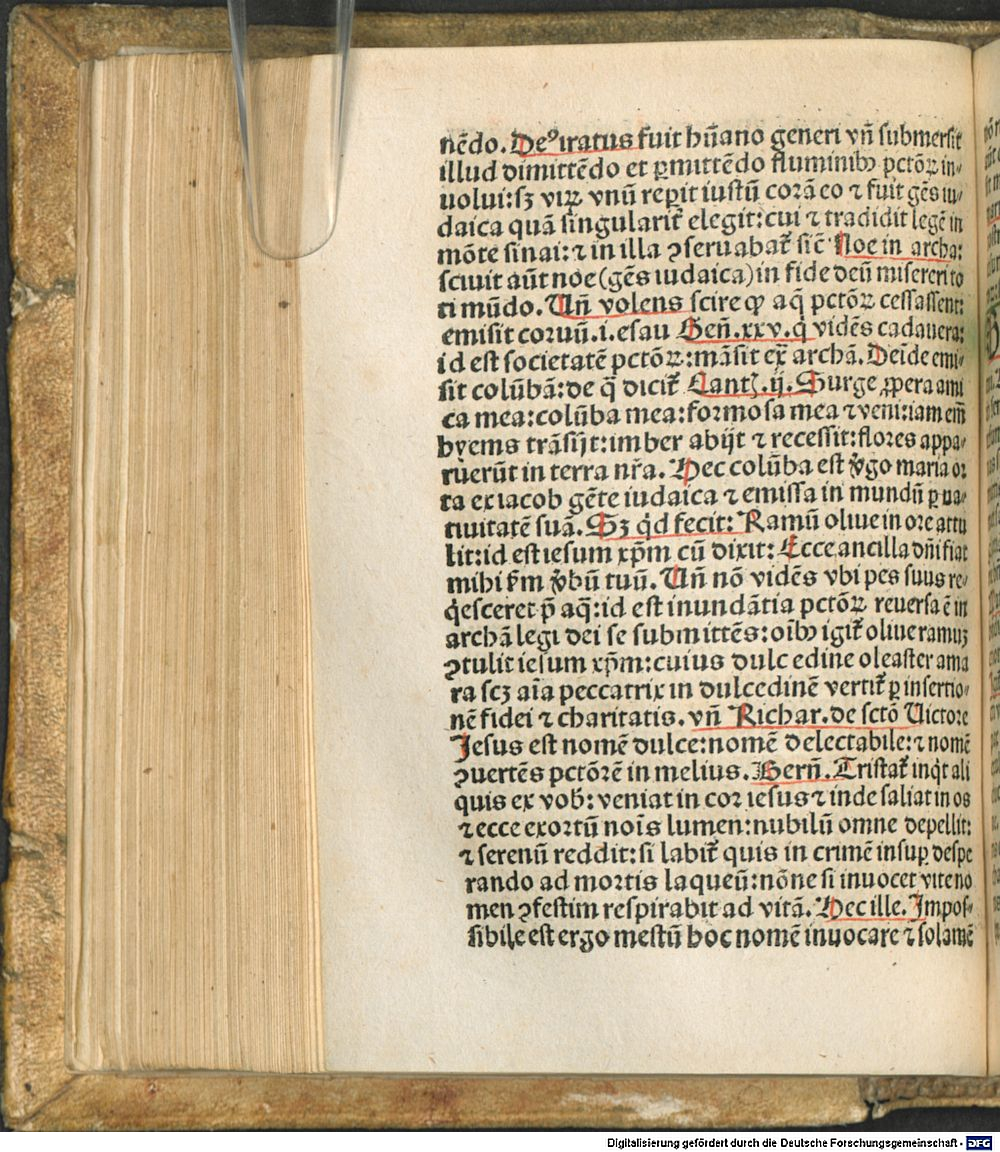 nēdo. Deꝰ iratus fuit hūano generi vñ submersit
illud dimittēdo et ꝑmittēdo fluminibꝫ pctōꝝ in⸗
uolui: sꝫ vix vnū reꝑit iustū corā eo ⁊ fuit gēs iu⸗
daica quā singularit̄ elegit: cui ⁊ tradidit legē in
mōte sinai: ⁊ in illa ꝯseruabat̄ sic̄ Noe in archa:
sciuit aūt noe (gēs iudaica) in fide deū misereri to
ti mūdo. Uñ volens scire ꝙ aq̄ pctōꝝ cessassent:
emisit coruū .i. esau Geñ. xxv. q̇ vidēs cadauera:
id est societatē pctōꝝ: māsit ex̄ archā. Deīde emi⸗
sit colūbā: de q̄ dicit̄ Cantꝫ. ij. Surge ꝓpera ami
ca mea: colūba mea: formosa mea ⁊ veni: iam em̄
hyems trāsijt: imber abijt ⁊ recessit: flores appa⸗
ruerūt in terra nr̄a. Hec colūba est v̾go maria or
ta ex iacob gēte iudaica ⁊ emissa in mundū ꝑ na⸗
tiuitatē suā. Sꝫ qd̓ fecit: Ramū oliue in ore attu
lit: id est iesum xp̄m cū dixit: Ecce ancilla dñi fiat
mihi f̄m v̾bū tuū. Uñ nō vidēs vbi pes suus re⸗
q̇esceret p̄ aq̄: id est inundātia pctōꝝ reuersa ē in
archā legi dei se submittēs: oībꝫ igit̄ oliue ramuꝫ
ꝯtulit iesum xp̄m: cuius dulcedine oleaster ama
ra scꝫ aīa peccatrix in dulcedinē vertit̄ ꝑ insertio⸗
nē fidei ⁊ charitatis. vñ Richar. de sctō Uictore
Jesus est nomē dulce: nomē delectabile: ⁊ nomē
ꝯuertēs pctōrē in melius. Berñ. Tristat̄ inq̇t ali
quis ex vob̓: veniat in cor iesus ⁊ inde saliat in os
⁊ ecce exortū noīs lumen: nubilū omne depellit:
⁊ serenū reddit: si labit̄ quis in crimē insuꝑ despe
rando ad mortis laqueū: nōne si inuocet vite no
men ꝯfestim respirabit ad vitā. Hec ille. Impos⸗
sibile est ergo mestū hoc nomē inuocare ⁊ solamē
Digitalisierung gefördert durch die Deutsche Forschungsgemeinschaft - DFG